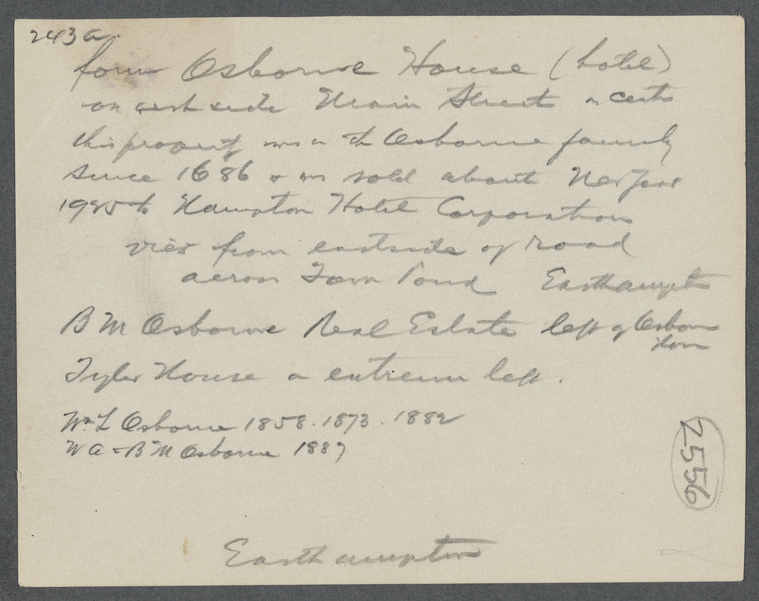 243a.
form Osborne House (hotel)
on west side Main Street in center
this property was in the Osborne family
since 1686 & was sold about New Year
1925 to Hampton Hotel Corporation
view from eastside of road
across Town Pond Easthampton
B M Osborne Real Estate left of Osborne
House
Tyler House on extreme left.
Wm L Osborne 1858. 1873. 1882
W A & B M Osborne 1887
2556
Easthampton